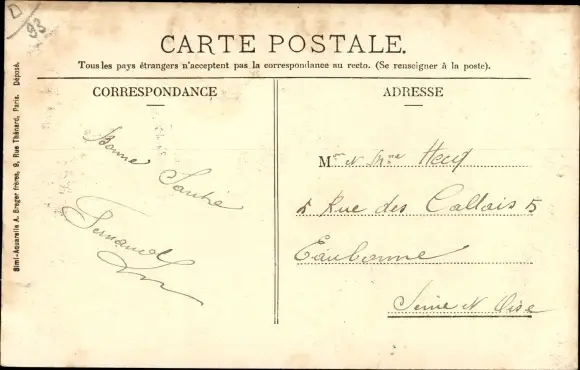 D
93
CARTE POSTALE.
Tous les pays étrangers n'acceptent pas la correspondance au recto. (Se renseigner à la poste).
CORRESPONDANCE
Bonne
Santé
Fernand
ADRESSE
Mr & Mme
5 Rue des Callais 5
Eaubonne
Seine & Oise
Simi-Aquarelle A. Breger frères, 9, Rue Thénard, Paris. Déposé.